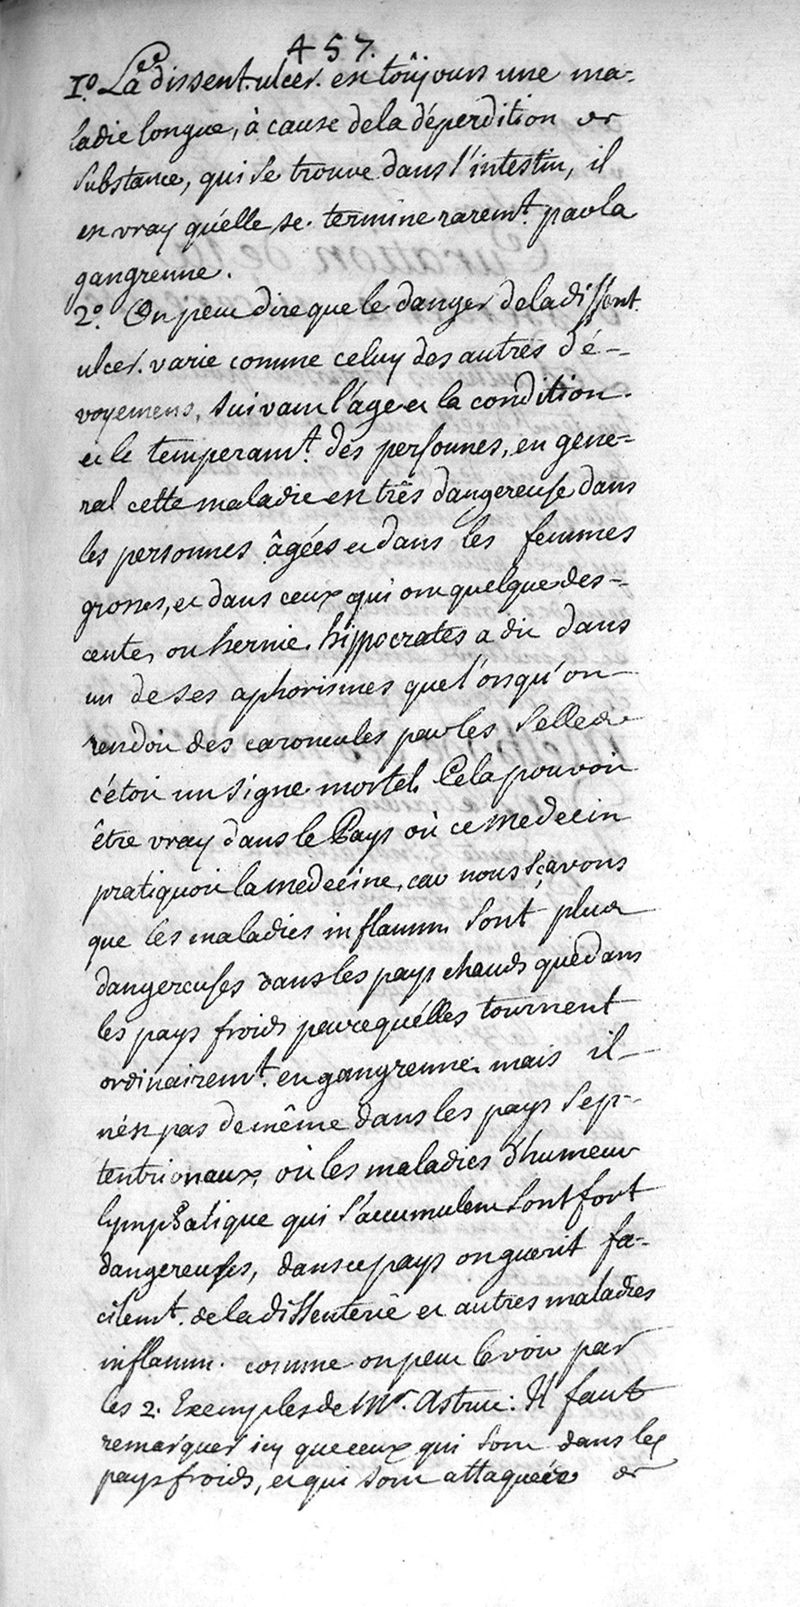 457.
1.º La dissent. ulcer. est toûjours une ma-
ladie longue, à cause dela déperdition de
substance, qui se trouve dans l'intestin, il
est vray qu'elle se termine raremt. par la
gangrenne.
2.º On peut dire que le danger dela dissent.
ulcer. varie comme celuy des autres dé-
voyemens, suivant l'age et la condition
et le temperamt. des personnes, en gene-
ral cette maladie est très dangereuse dans
les personnes âgées et dans les femmes
grosses, et dans ceux qui ont quelque des-
cente, ou hernie. hippocrates a dit dans
un de ses aphorismes que l'orsqu'on
rendoit des caroncules par les selles
c'étoit un signe mortel. Cela pouvoit
être vray dans le Pays où ce medecin
pratiquoit la medecine, car nous sçavons
que les maladies inflamm. sont plus
dangereuses dans les pays chauds que dans
les pays froids parcequ'élles tournent
ordinairemt. en gangrenne. mais il
n'ést pas de même dans les pays sep-
tentrionaux, où les maladies d'humeur
lymphatique qui s'accumulent sont fort
dangereuses, dans ce pays on guerit fa-
cilemt. de la dissenterie et autres maladies
inflamm. comme on peut le voir par
les 2. Exemples de Mr. Astruc: Il faut
remarquer icy que ceux qui sont dans les
pays froids, et qui sont attaquées de